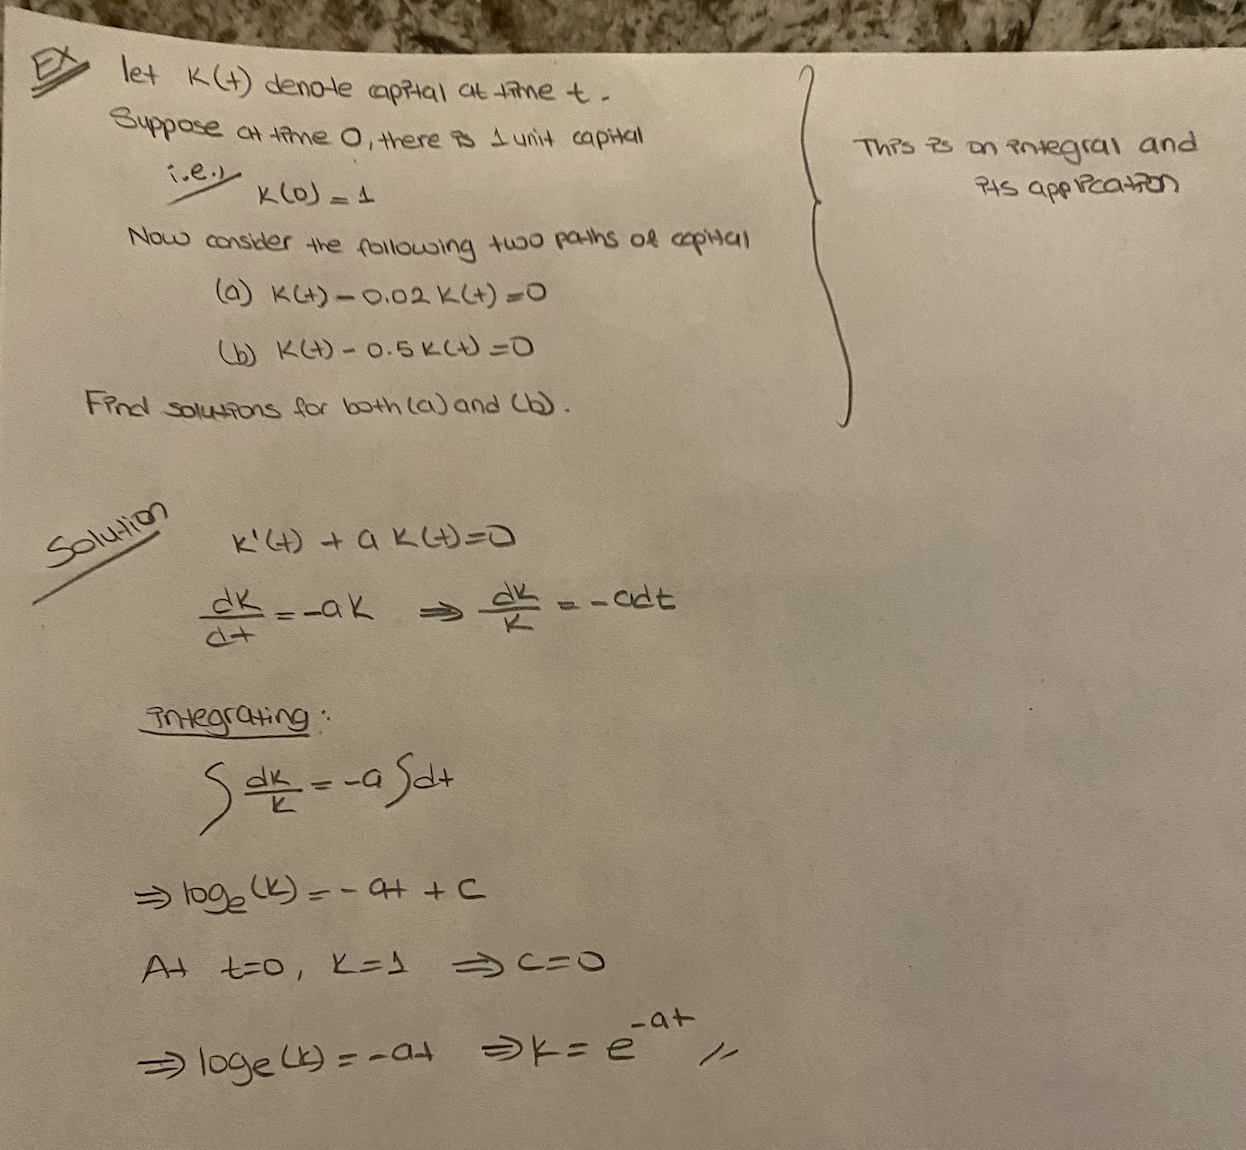 EX let K(t) denote capital at time t.
Suppose at time 0, there is 1 unit capital
i.e.,
K(0) = 1
Now consider the following two paths of capital
(a) K(t) - 0.02 K(t) = 0
(b) K(t) - 0.5 K(t) = 0
Find solutions for both (a) and (b).
This is on integral and
its application
Solution
K'(t) + a K(t) = 0
dK/dt = -aK ⇒ dK/K = -adt
integrating:
∫ dK/K = -a ∫dt
⇒ logₑ(K) = -at + C
At t=0, K=1 ⇒ C=0
⇒ logₑ(K) = -at ⇒ K = e^-at //